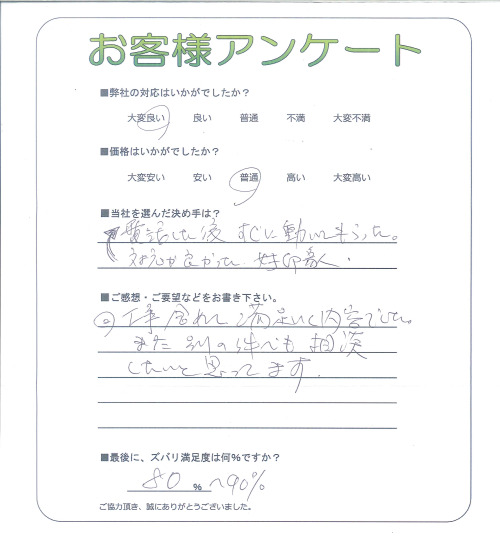 お客様アンケート
■弊社の対応はいかがでしたか？
大変良い 良い 普通 不満 大変不満
■価格はいかがでしたか？
大変安い 安い 普通 高い 大変高い
■当社を選んだ決め手は？
電話した後 すぐに動いてもらった。
対応が良かった. 好印象
■ご感想・ご要望などをお書き下さい。
満足いく内容でした。
また別の件でも 相談
したいと思ってます.
■最後に、ズバリ満足度は何％ですか？
80 % ~90%
ご協力頂き、誠にありがとうございました。